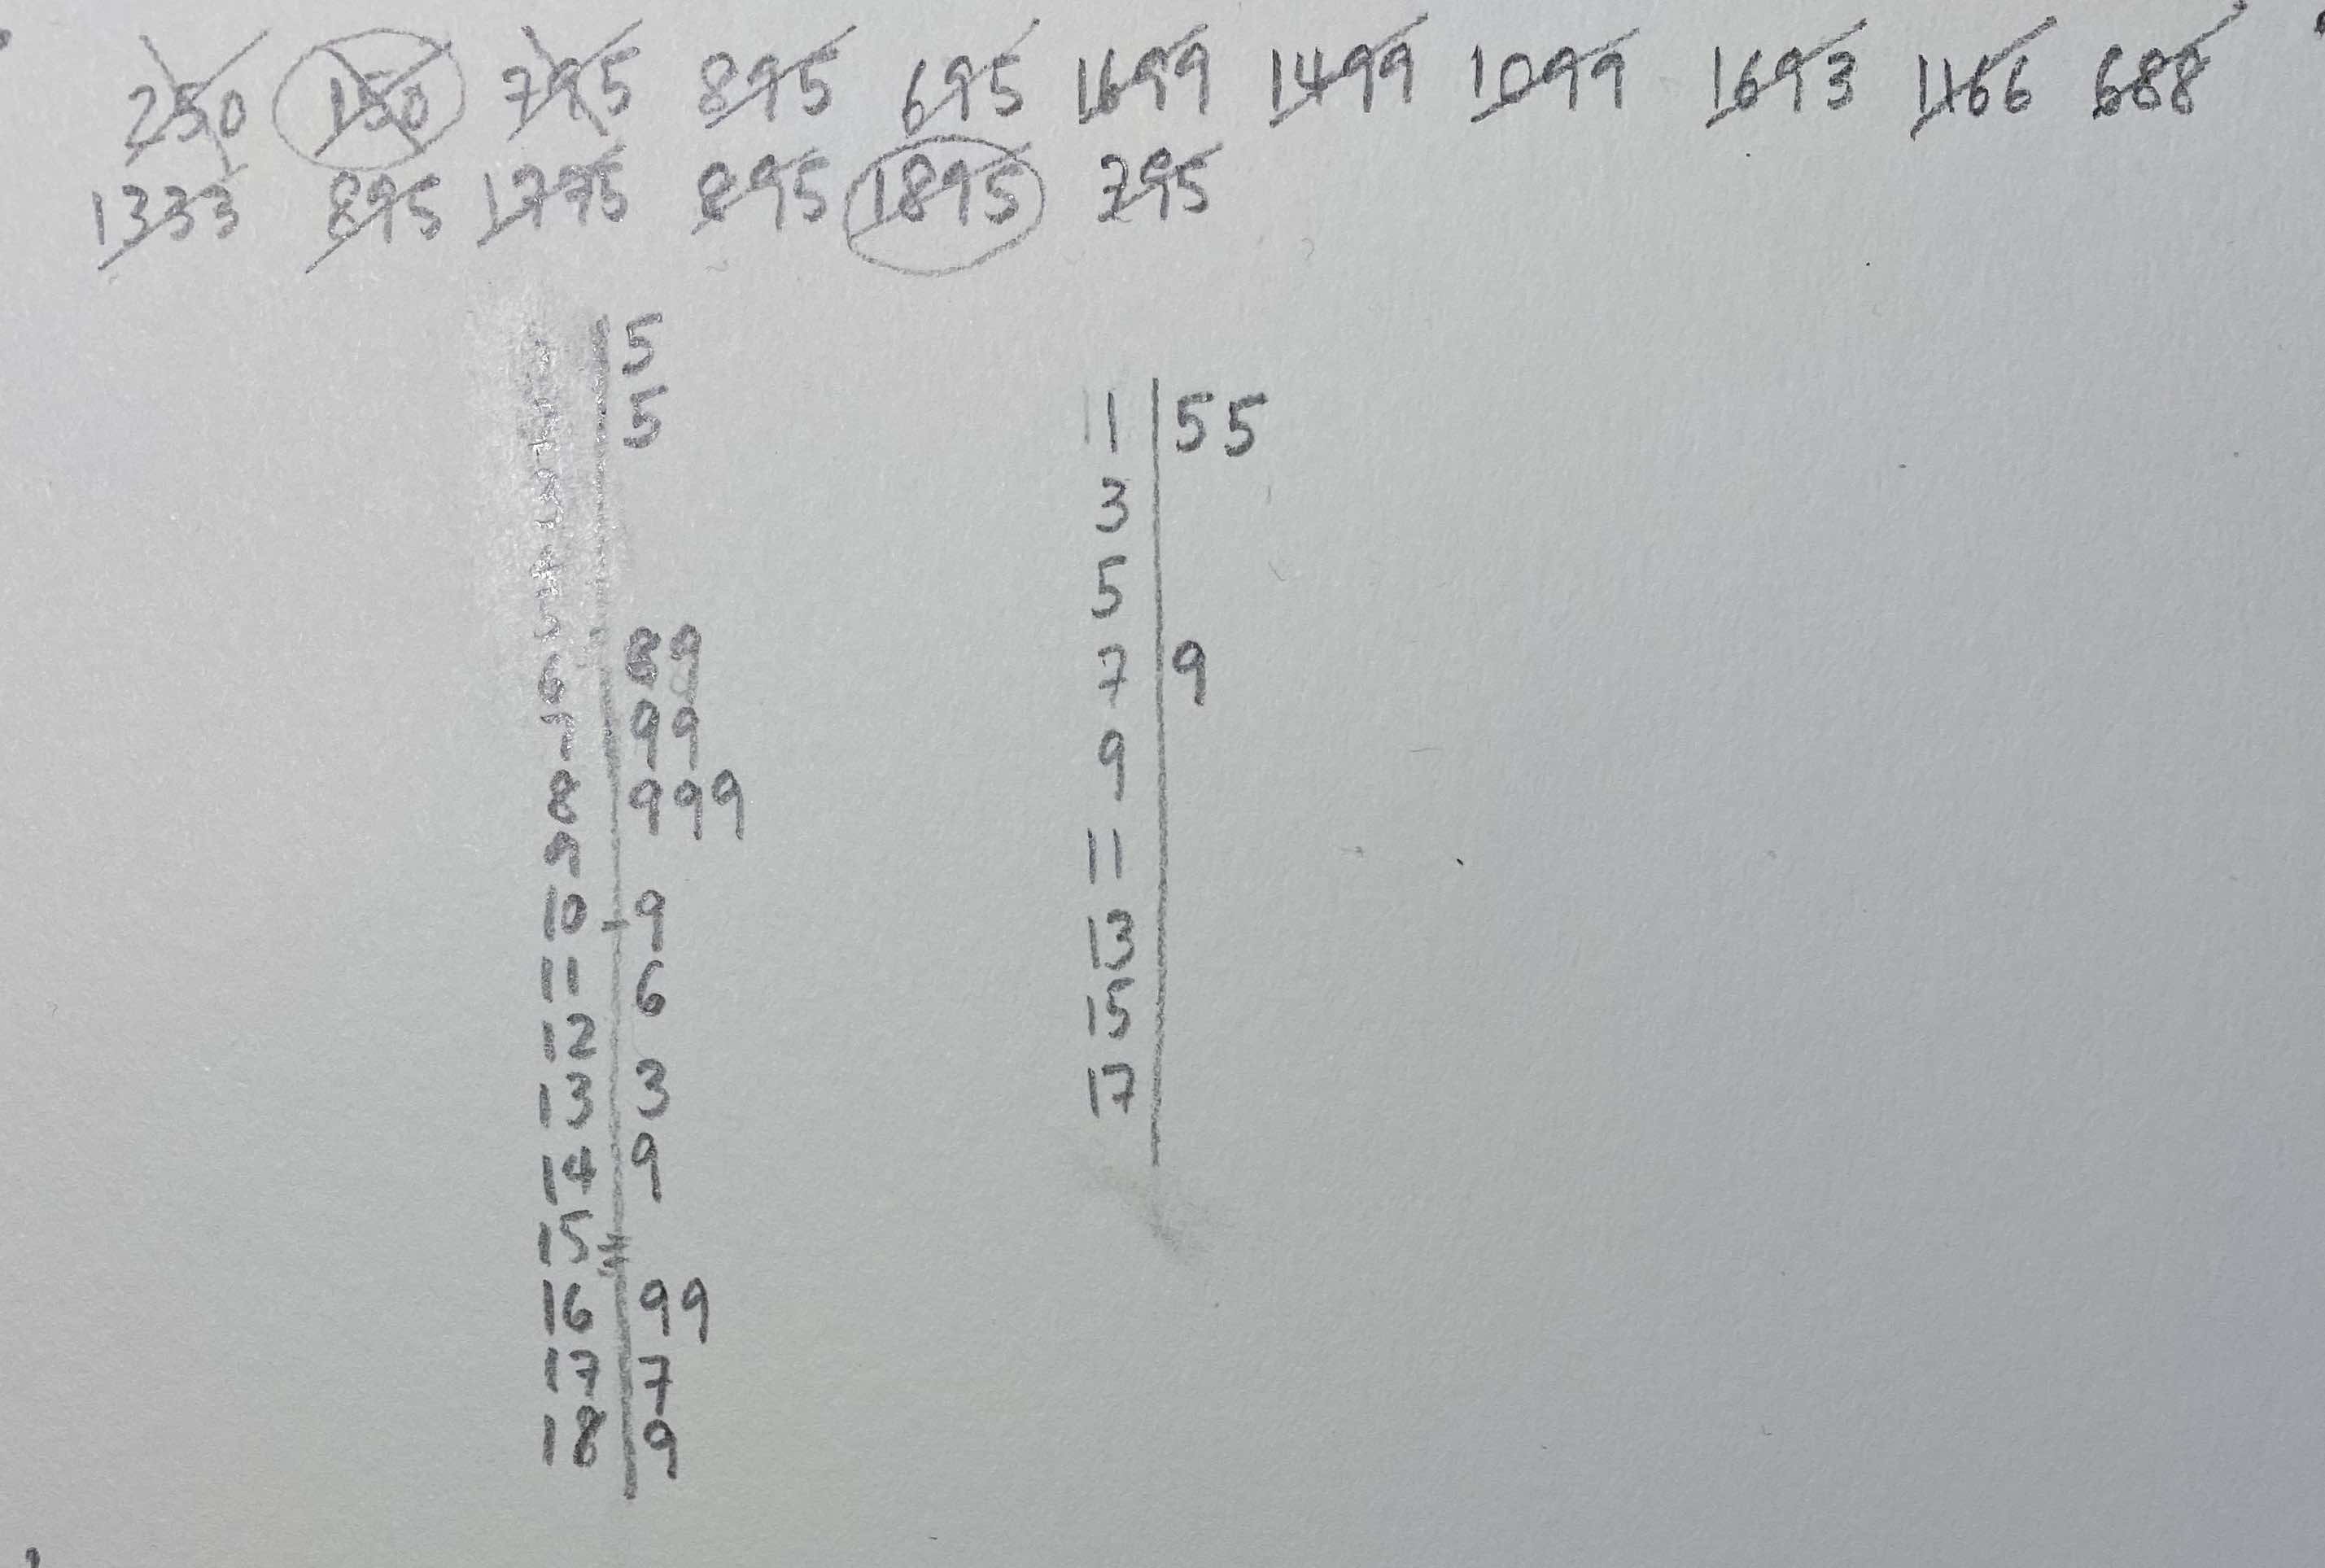 250 150 795 895 695 1699 1499 1099 1693 1166 688
1333 895 1775 895 1895 795
5
5
6 89
7 99
8 999
9
10 9
11 6
12
13 3
14 9
15
16 99
17 7
18 9
1 55
3
5
7 9
9
11
13
15
17